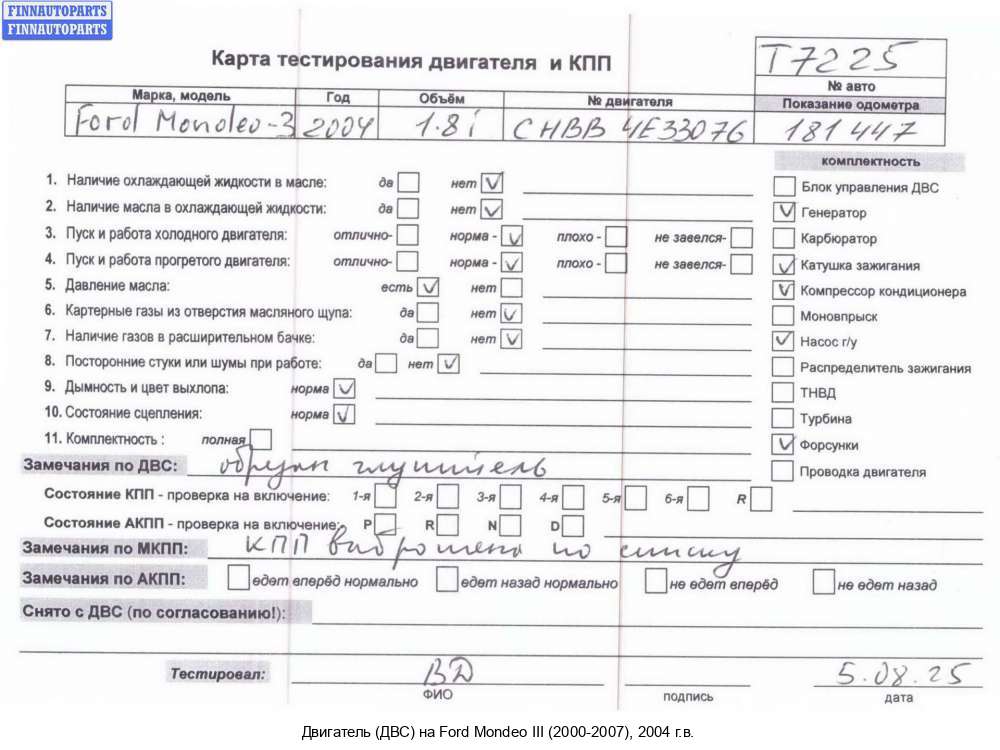 FINNAUTOPARTS
FINNAUTOPARTS
Карта тестирования двигателя и КПП
T7225
№ авто
Марка, модель Год Объём № двигателя Показание одометра
Ford Mondeo-3 2004 1.8i CHBB 4E33076 181 447
комплектность
1. Наличие охлаждающей жидкости в масле: да нет
Блок управления ДВС
2. Наличие масла в охлаждающей жидкости: да нет
Генератор
3. Пуск и работа холодного двигателя: отлично- норма - плохо - не завелся-
Карбюратор
4. Пуск и работа прогретого двигателя: отлично- норма - плохо - не завелся-
Катушка зажигания
5. Давление масла: есть нет
Компрессор кондиционера
6. Картерные газы из отверстия масляного щупа: да нет
Моновпрыск
7. Наличие газов в расширительном бачке: да нет
Насос г/у
8. Посторонние стуки или шумы при работе: да нет
Распределитель зажигания
9. Дымность и цвет выхлопа: норма
ТНВД
10. Состояние сцепления: норма
Турбина
11. Комплектность : полная
Форсунки
Замечания по ДВС: обрезан глушитель
Проводка двигателя
Состояние КПП - проверка на включение: 1-я 2-я 3-я 4-я 5-я 6-я R
Состояние АКПП - проверка на включение: P R N D
Замечания по МКПП: КПП выброшена по списку
Замечания по АКПП: едет вперёд нормально едет назад нормально не едет вперёд не едет назад
Снято с ДВС (по согласованию!):
Тестировал: ВД 5.08.25
ФИО подпись дата
Двигатель (ДВС) на Ford Mondeo III (2000-2007), 2004 г.в.